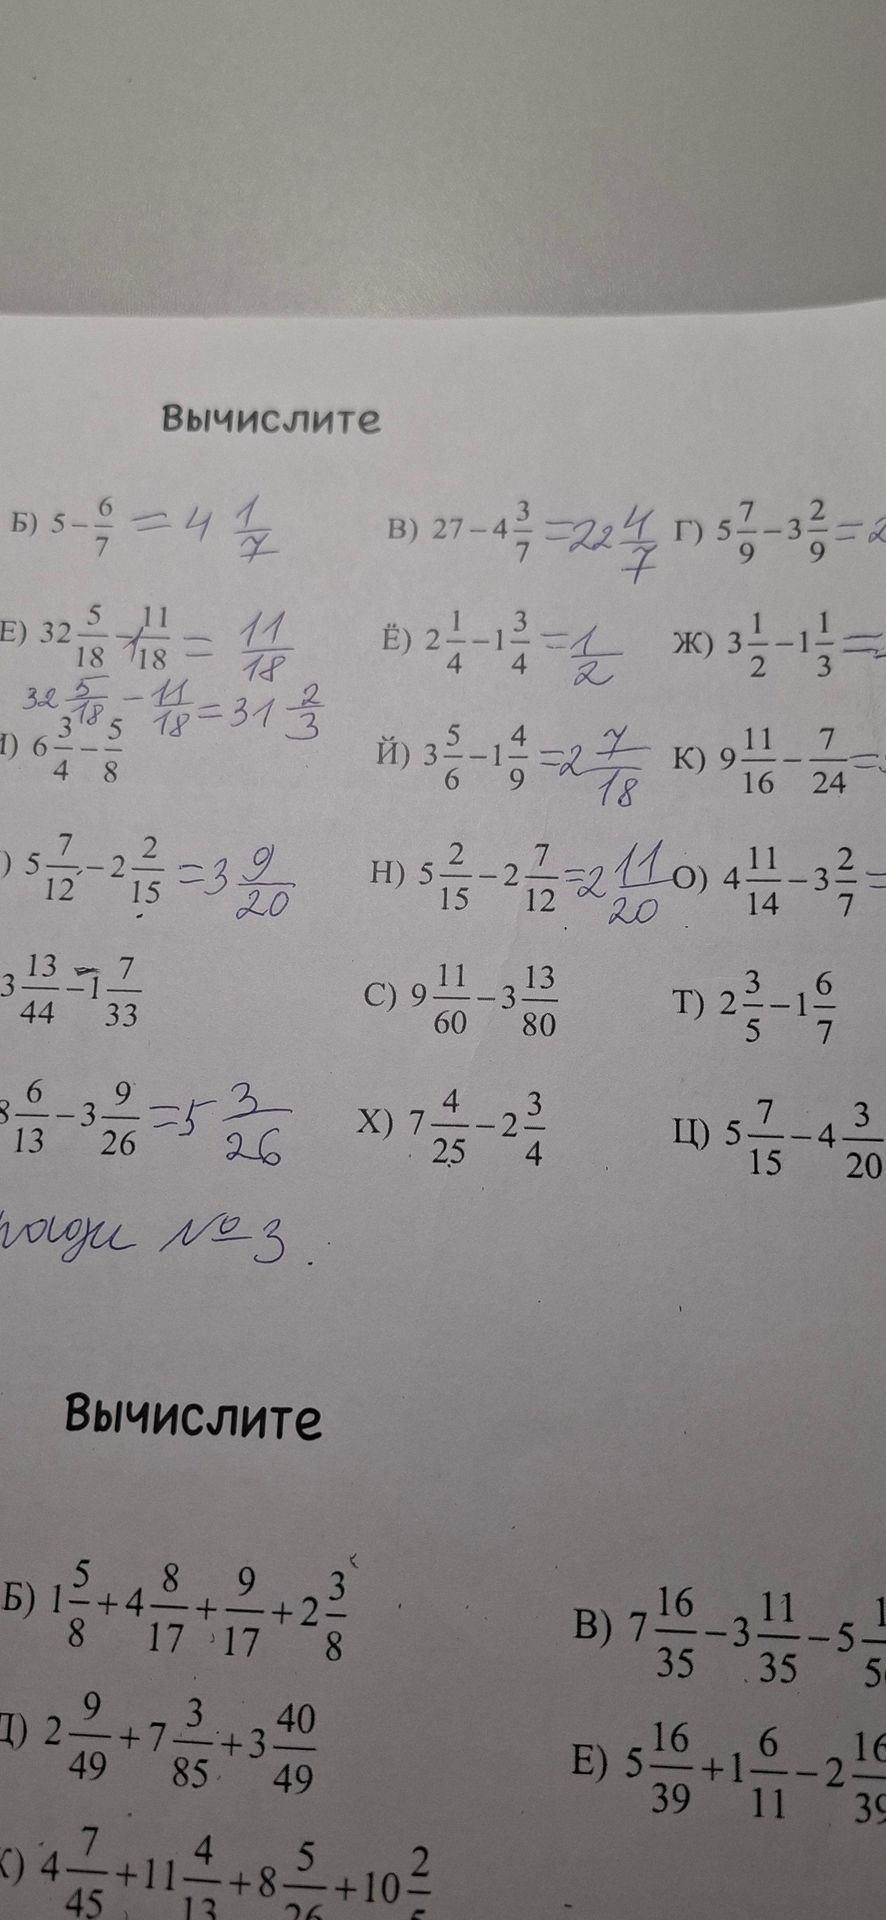 Вычислите
Б) 5 − 6/7 = 4 1/7 В) 27 − 4 3/7 = 22 4/7 Г) 5 7/9 − 3 2/9 = 2
Е) 32 5/18 − 1 11/18 = 11/18 Ё) 2 1/4 − 1 3/4 = 1/2 Ж) 3 1/2 − 1 1/3 =
32 5/18 − 11/18 = 31 2/3
) 6 3/4 − 5/8 Й) 3 5/6 − 1 4/9 = 2 7/18 К) 9 11/16 − 7/24 =
) 5 7/12 − 2 2/15 = 3 9/20 Н) 5 2/15 − 2 7/12 = 2 11/20 О) 4 11/14 − 3 2/7 =
3 13/44 − 1 7/33 С) 9 11/60 − 3 13/80 Т) 2 3/5 − 1 6/7
8 6/13 − 3 9/26 = 5 3/26 Х) 7 4/25 − 2 3/4 Ц) 5 7/15 − 4 3/20
№ 3.
Вычислите
Б) 1 5/8 + 4 8/17 + 9/17 + 2 3/8 В) 7 16/35 − 3 11/35 − 5
Д) 2 9/49 + 7 3/85 + 3 40/49 Е) 5 16/39 + 1 6/11 − 2 16/39
) 4 7/45 + 11 4/13 + 8 5/26 + 10 2/5